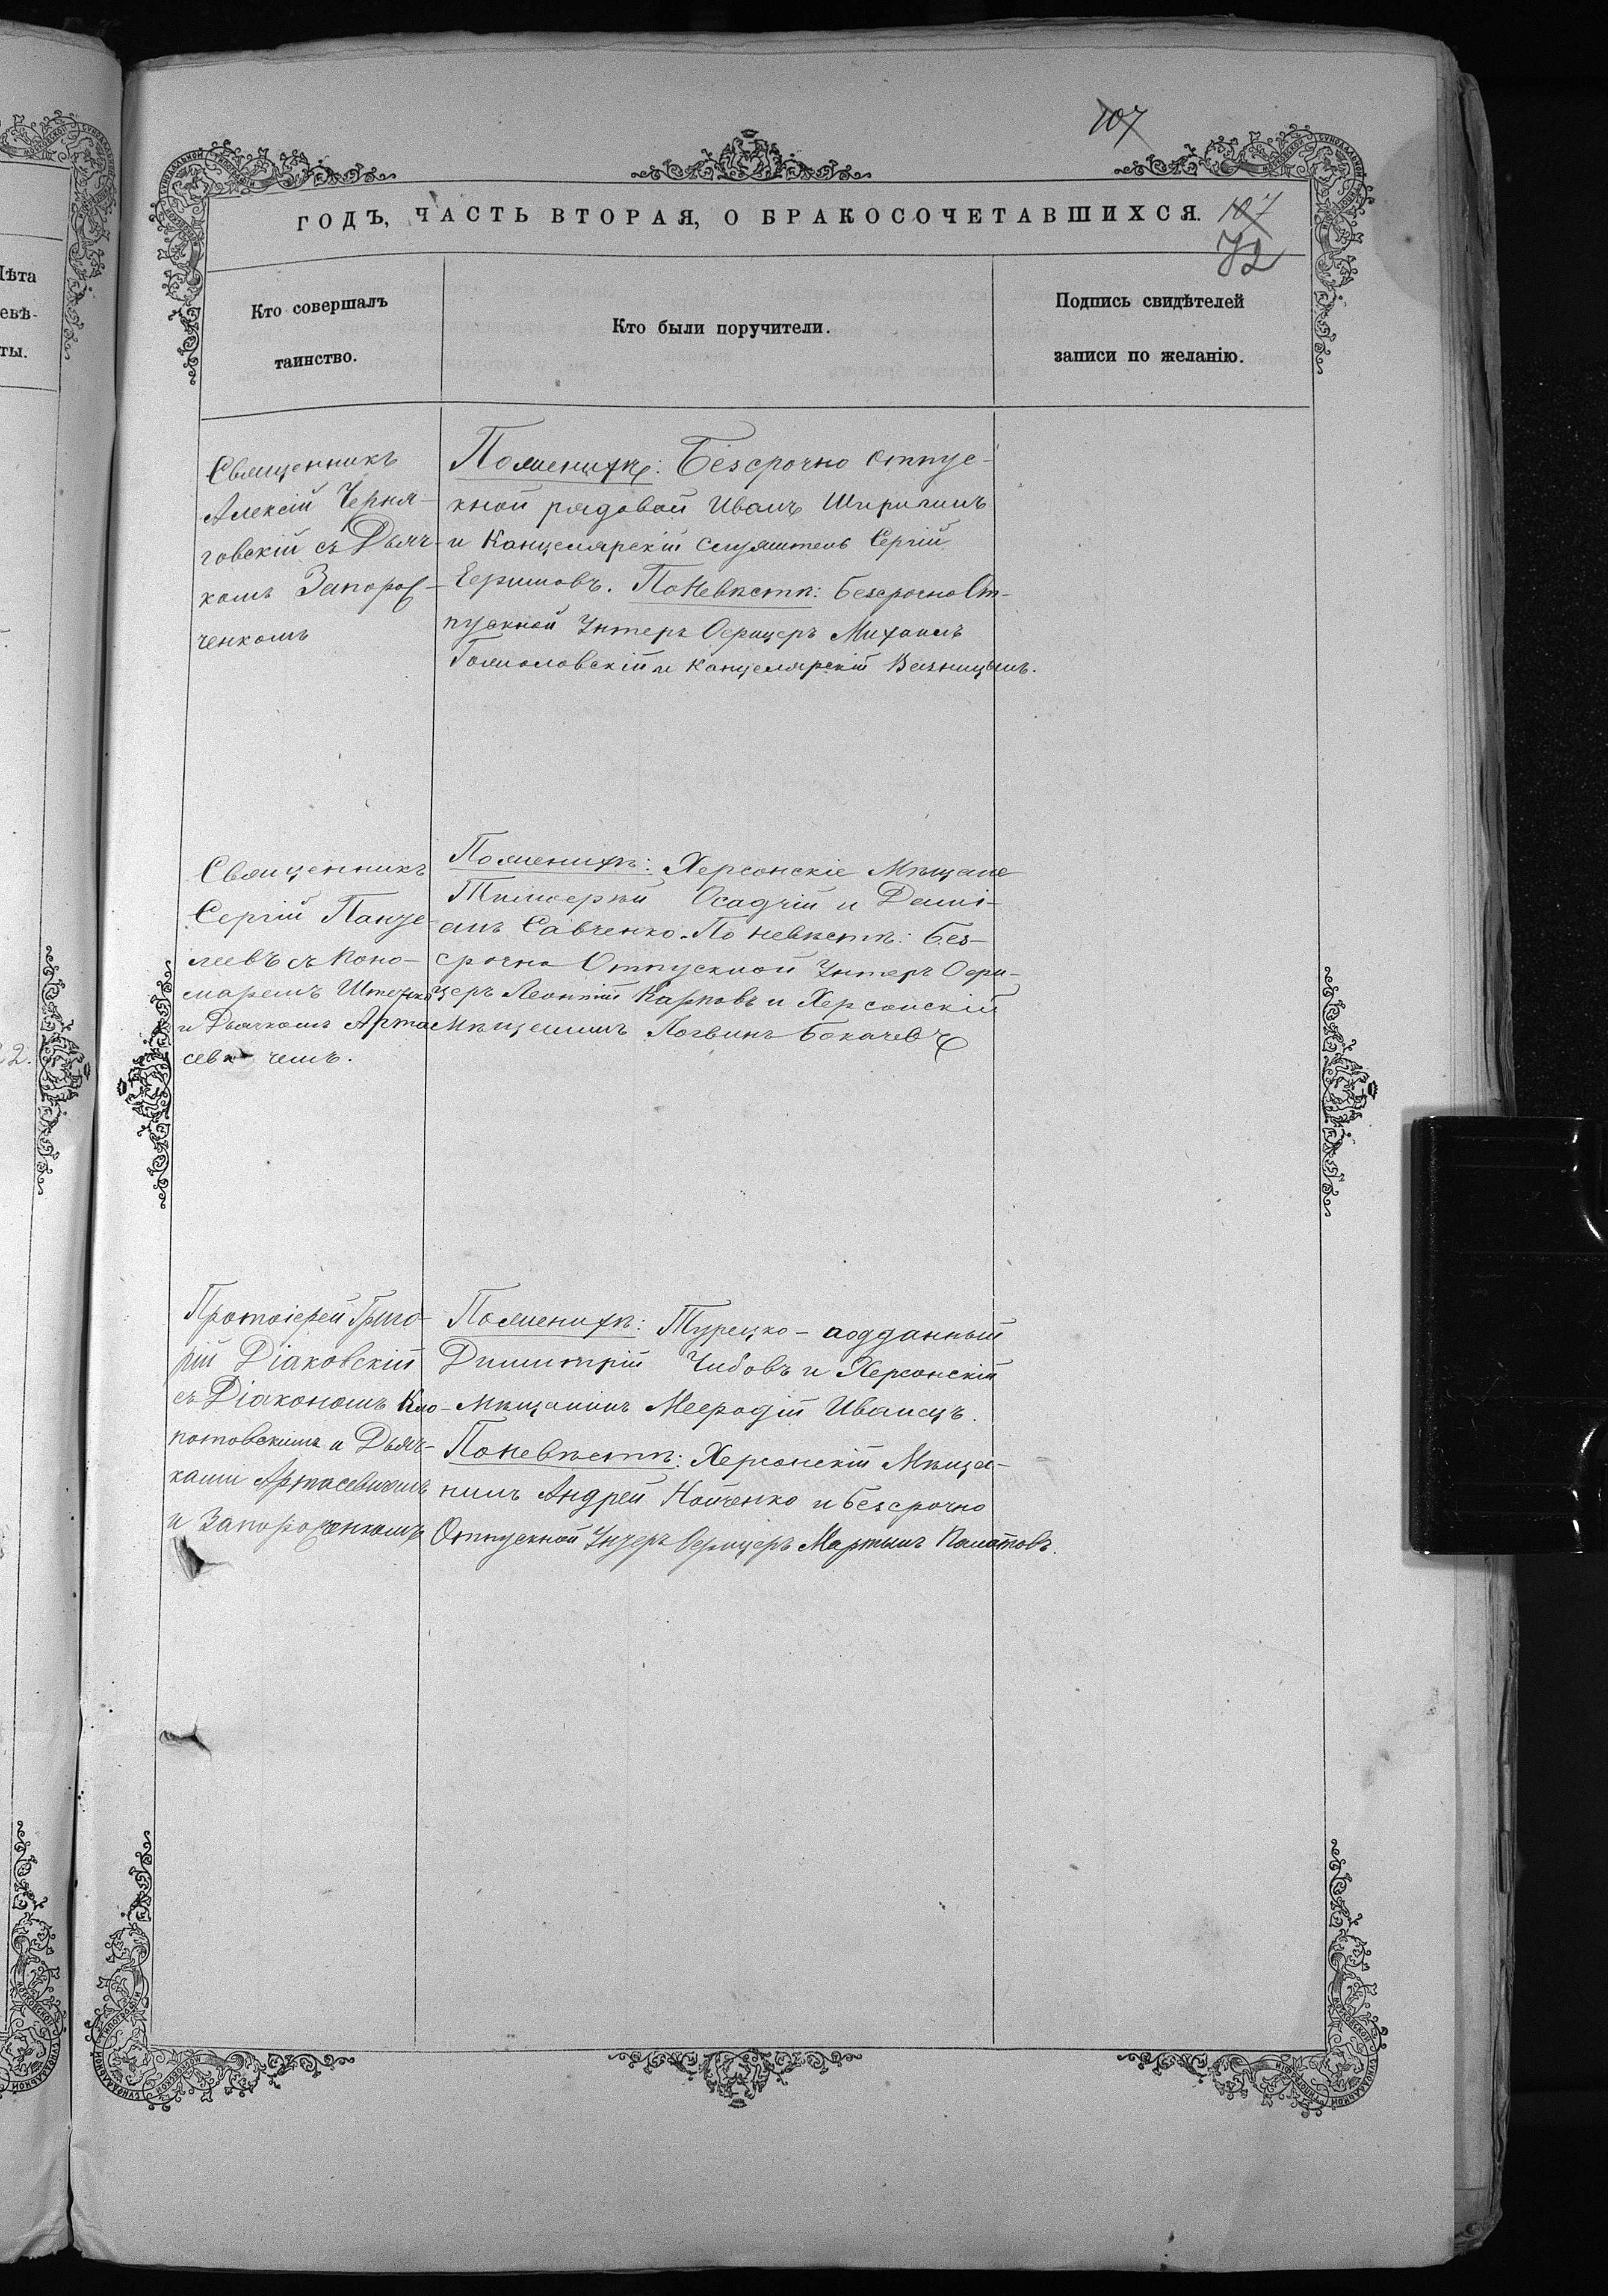 107
ГОДЪ, ЧАСТЬ ВТОРАЯ, О БРАКОСОЧЕТАВШИХСЯ.
107
72
Лѣта
невѣ-
ты.
Кто совершалъ
таинство.
Кто были поручители.
Подпись свидѣтелей
записи по желанію.
Священникъ
Алексій Черня-
говскій съ Дьяч-
комъ Запорож-
ченкомъ
По женихѣ: Безсрочно отпус-
кной рядовой Иванъ
и Канцелярскій служитель Сергій
Ефимовъ. По Невѣстѣ: безсрочно От-
пускной Унтеръ Офицеръ Михаилъ
и Канцелярскій
Священникъ
Сергій
съ Поно-
маремъ
и Дьячкомъ Арта
севичемъ.
По женихѣ: Херсонскіе Мѣщане
Тимофей Осадчій и Дамі-
анъ Савченко. По невѣстѣ: Без-
срочно Отпускной Унтеръ Офи-
церъ Леонтій Карповъ и Херсонскій
Мѣщанинъ Логвинъ
22.
Протоіерей Григо-
рій Діаковскій
съ Діакономъ Кло-
потовскимъ и Дьяч-
ками Артасевичемъ
и Запорожченкомъ
По женихѣ: Турецко-подданный
Димитрій Чибовъ и Херсонскій
Мѣщанинъ Меѳодій Иванецъ.
По невѣстѣ: Херсонскій Мѣща-
нинъ Андрей Нойченко и безсрочно
Отпускной Унтеръ Офицеръ Мартынъ